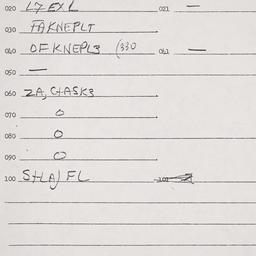 020 L7 EX L 021 —
030 FAKNEPLT
040 OFKNEPL3 (330 041 —
050 —
060 ZA, C+ASK3
070 0
080 0
090 0
100 S+LA) FL